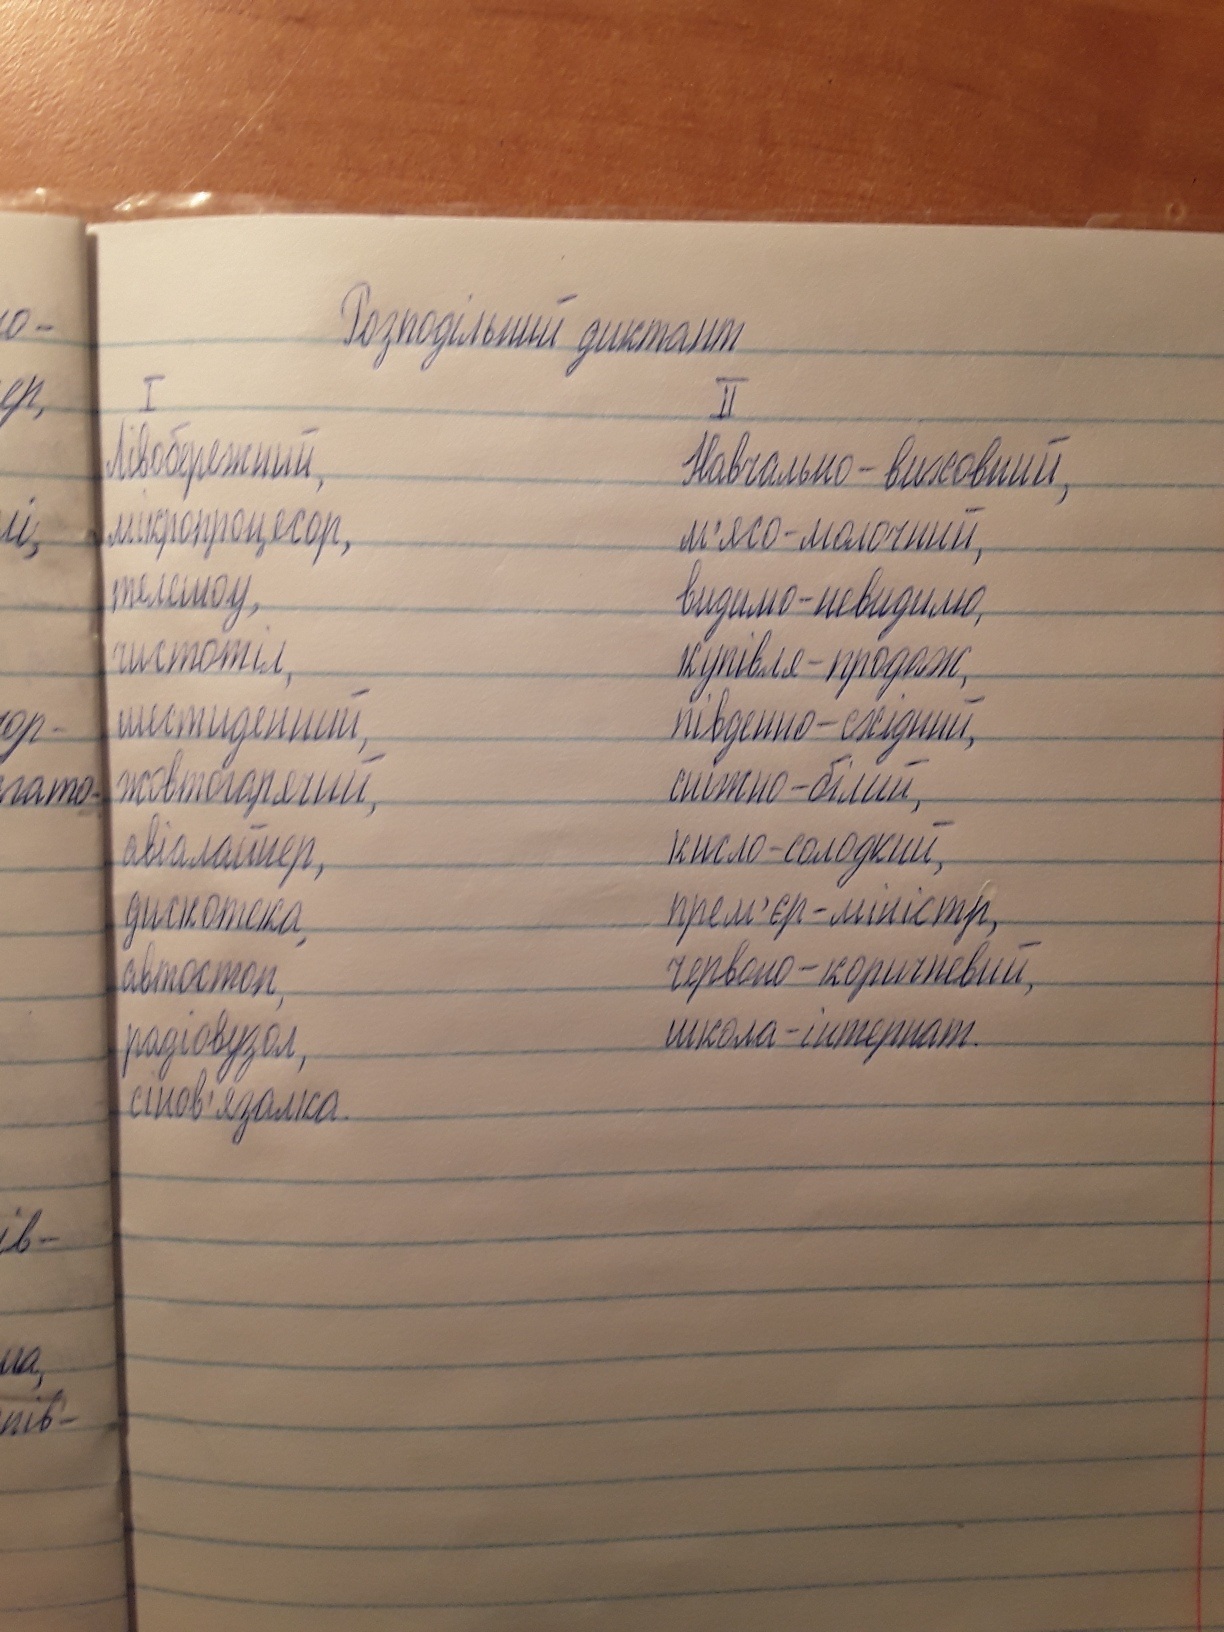 Розподільний диктант
I
Лівобережний,
мікропроцесор,
телешоу,
чистотіл,
шестиденний,
жовтогарячий,
авіалайнер,
дискотека,
автостоп,
радіовузол,
сінов'язалка.
II
Навчально-виховний,
м'ясо-молочний,
видимо-невидимо,
купівля-продаж,
південно-східний,
сніжно-білий,
кисло-солодкий,
прем'єр-міністр,
червоно-коричневий,
школа-інтернат.